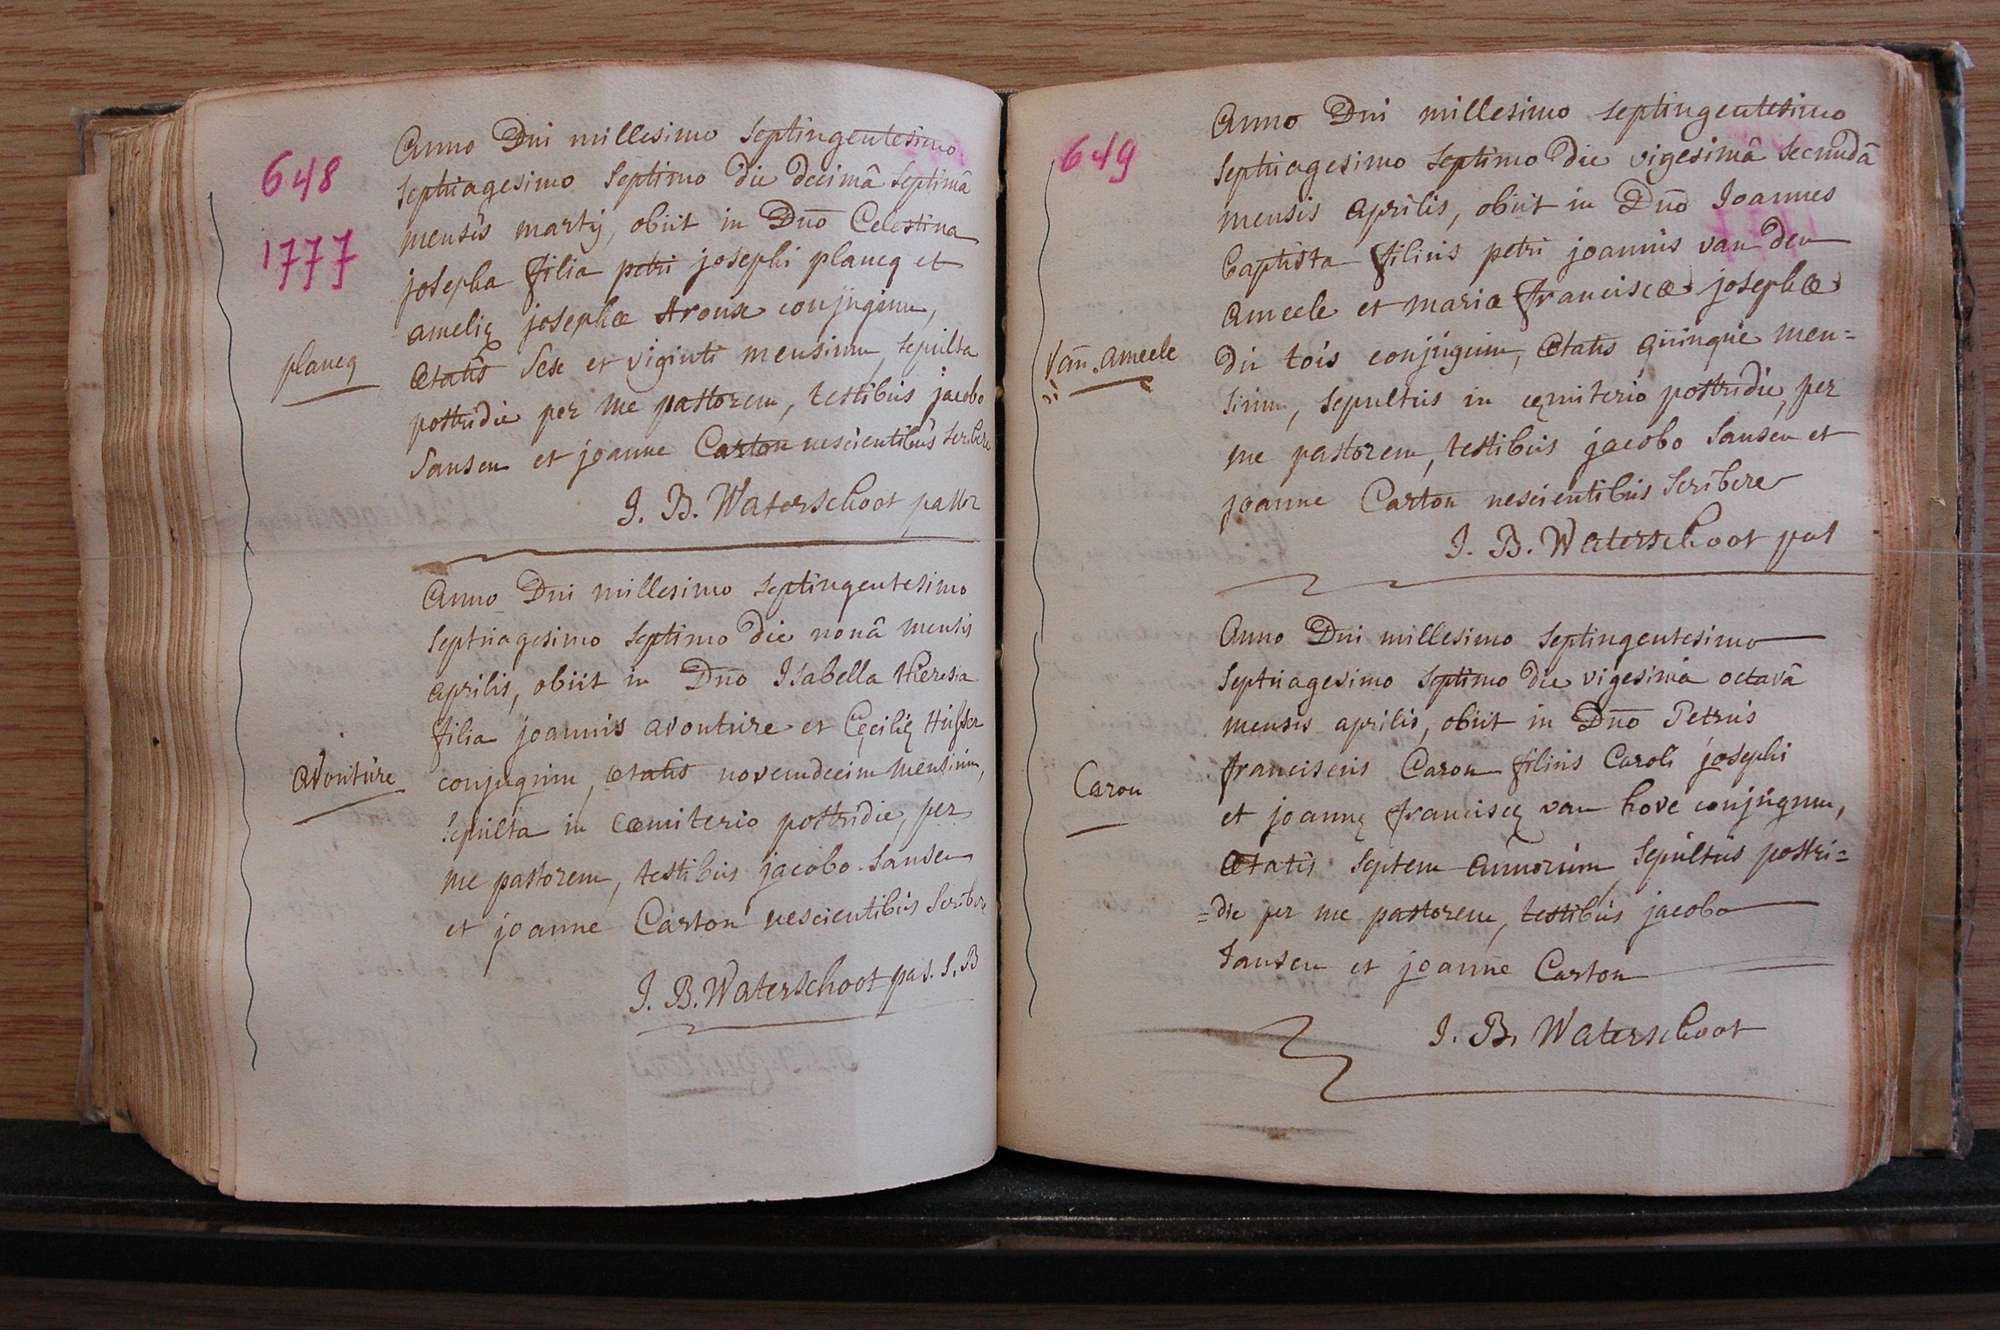 648
1777
Anno Dni millesimo septingentesimo
septuagesimo septimo die decimâ septimâ
mensis martij, obiit in Dno Celestina
josepha filia petri josephi plancq et
amelię josephæ Aroux conjugum,
ætatis sex et viginti mensium, sepulta
postridie per me pastorem, testibus jacobo
Jansen et joanne Carton nescientibus scribere
J. B. Waterschoot pastor
plancq
Anno Dni millesimo septingentesimo
septuagesimo septimo die nonâ mensis
aprilis, obiit in Dno Isabella theresia
filia joannis avonture et Cęcilię
conjugum, ætatis novemdecim mensium,
sepulta in cœmiterio postridie, per
me pastorem, testibus jacobo Jansen
et joanne Carton nescientibus scribere
J. B. Waterschoot pas. S. B
avonture
649
Anno Dni millesimo septingentesimo
septuagesimo septimo die vigesimâ secundâ
mensis aprilis, obiit in Dno Joannes
baptista filius petri joannis van den
ameele et mariæ franciscæ josephæ
du tois conjugum, ætatis quinque men=
sium, sepultus in cęmiterio postridie, per
me pastorem, testibus jacobo Jansen et
joanne Carton nescientibus scribere
J. B. Waterschoot past
Van ameele
Anno Dni millesimo septingentesimo
septuagesimo septimo die vigesimâ octavâ
mensis aprilis, obiit in Dno Petrus
franciscus Caron filius Caroli josephi
et joannę franciscę van hove conjugum,
ætatis septem annorum sepultus postri=
=die per me pastorem, testibus jacobo
Jansen et joanne Carton
J. B. Waterschoot
Caron